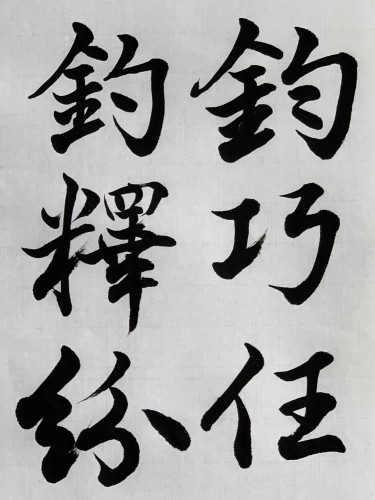 鈞巧任
釣釋紛